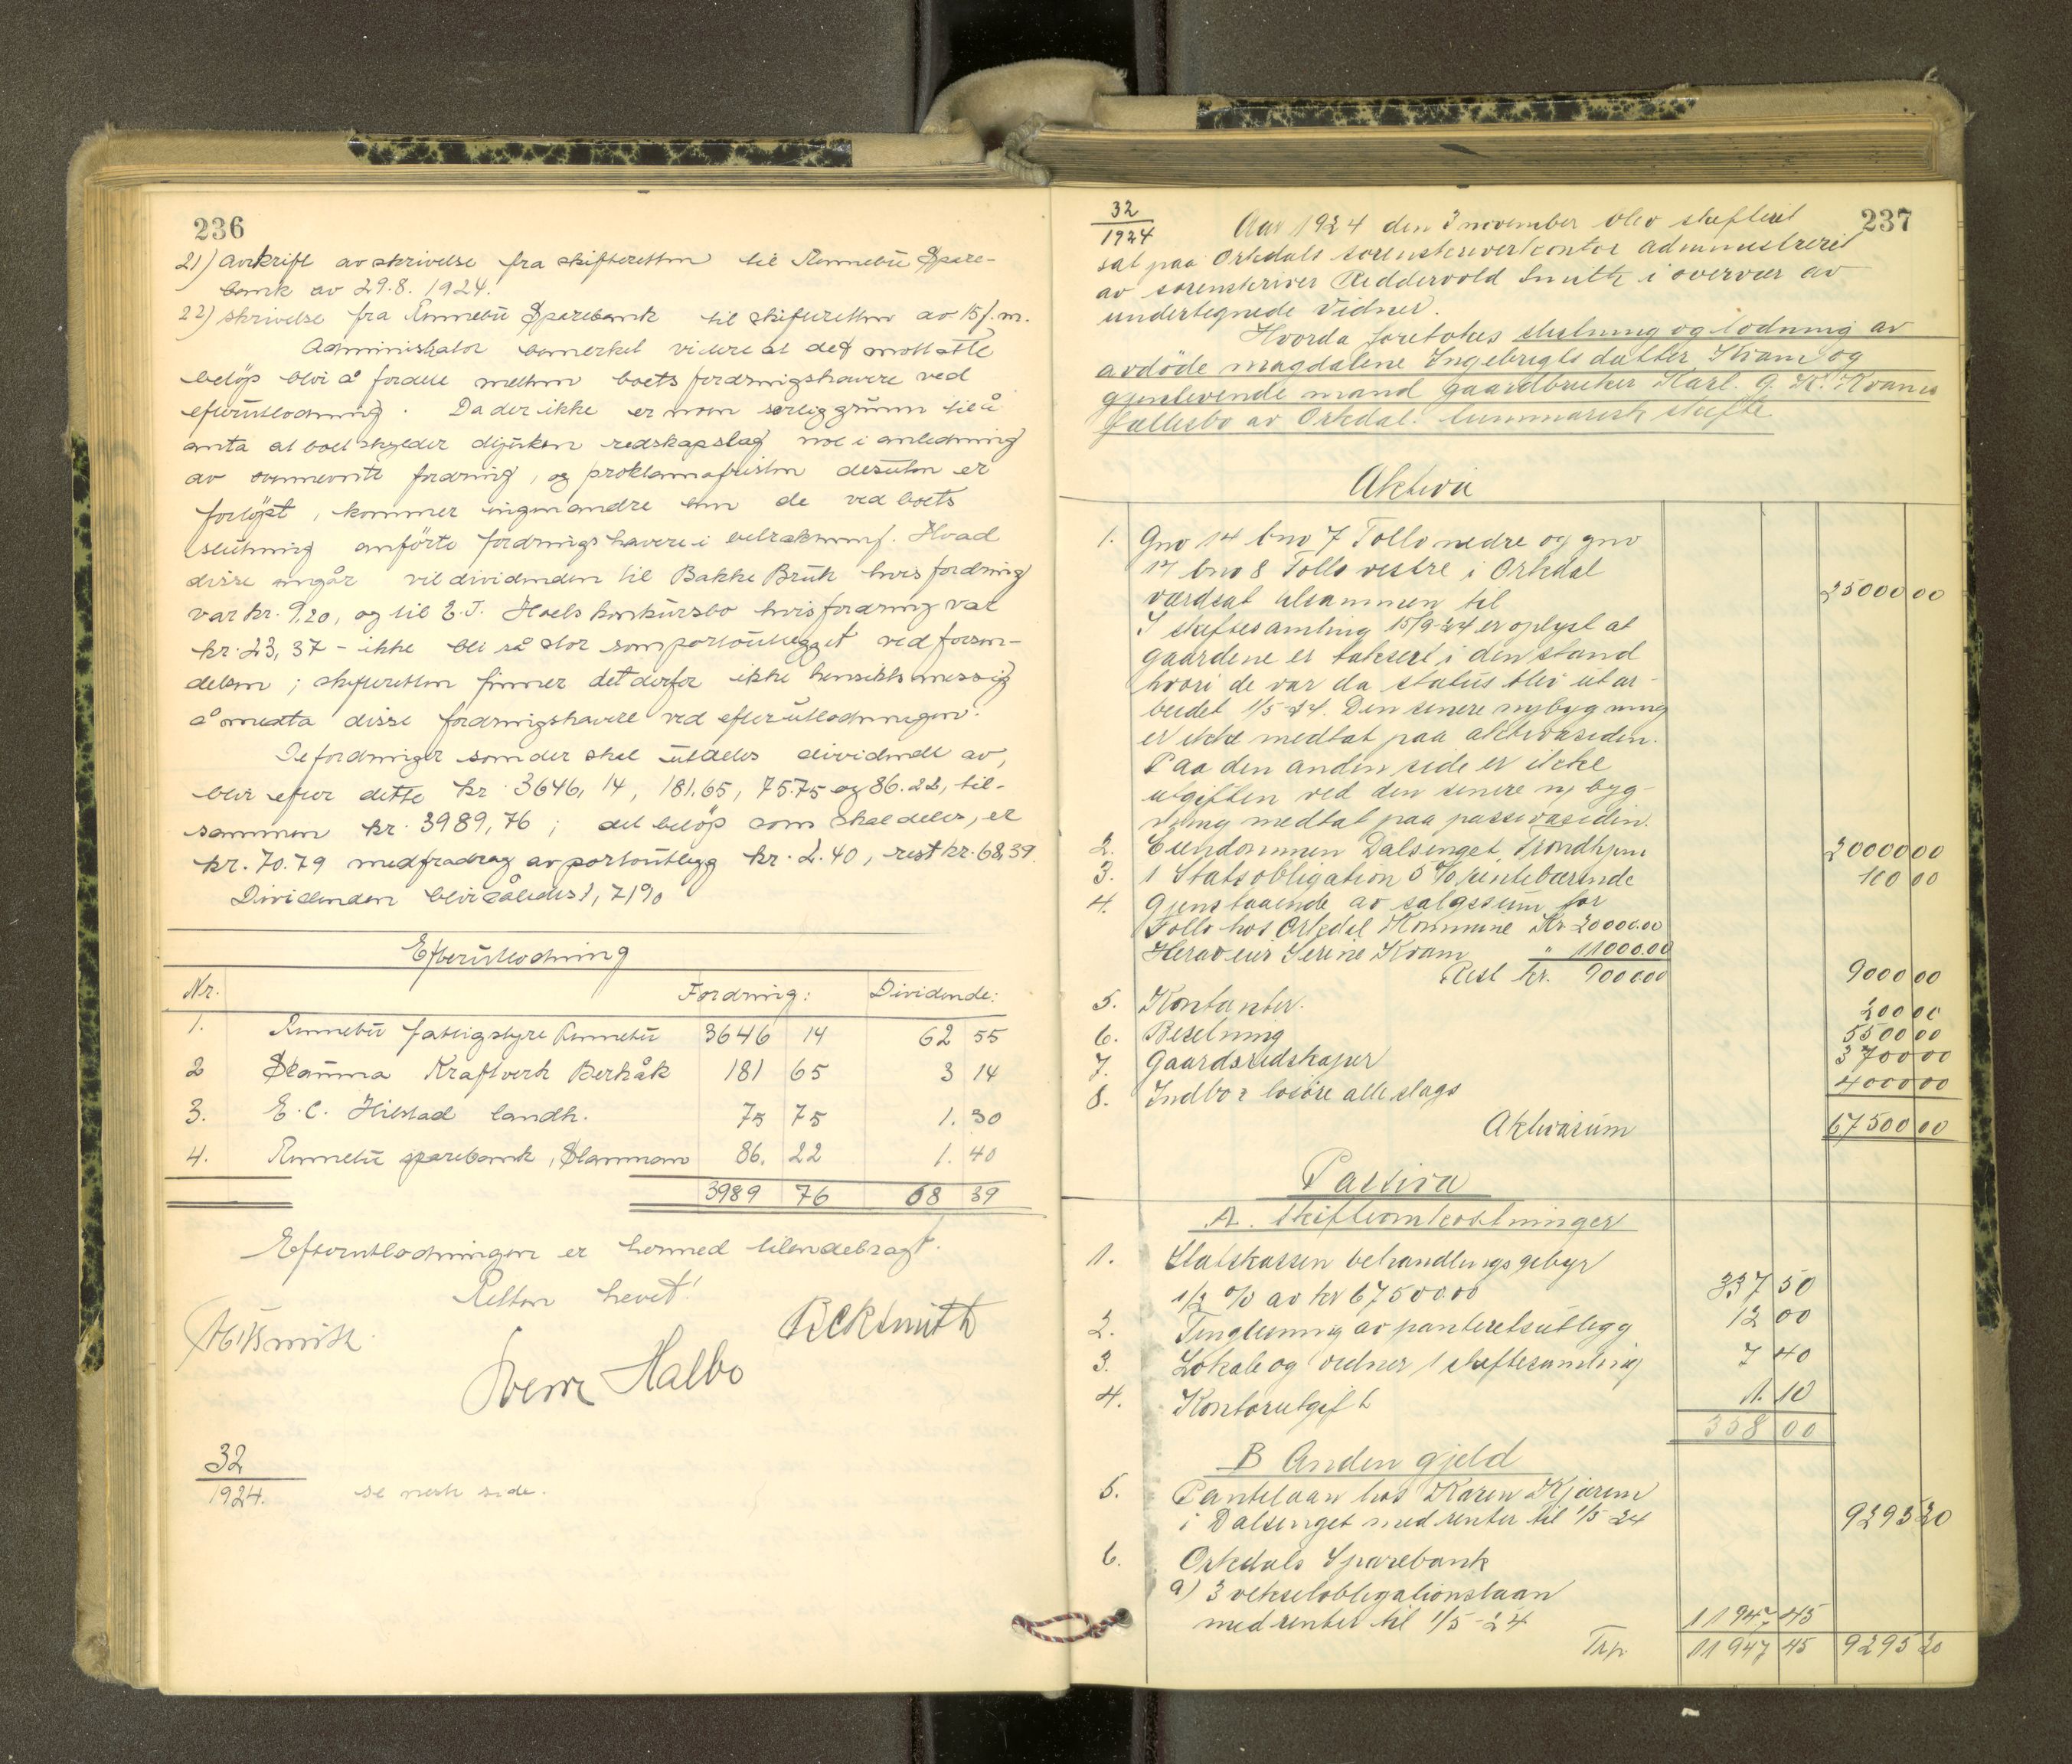 236
21) Avskrift av skrivelse fra skifteretten til Rennebu Spare-
bank av 29.8.1924.
22) Skrivelse fra Rennebu Sparebank til skifteretten av 15/. m.
Administrator bemerket videre at det mottatte
beløp blir å fordele mellem boets fordringshavere ved
efterutlodning. Da der ikke er noen særlig grunn til å
anta at boet skylder redskapslag noe i anledning
av ovennevnte fordring, og proklamafristen desuten er
forløpt, kommer ingen andre enn de ved boets
slutning anførte fordringshavere i betraktning. Hvad
disse angår vil dividenden til Bakke Bruk hvis fordring
var kr. 9,20, og til E. J. Hoels konkursbo hvis fordring var
kr. 23,37 - ikke bli så stor som portoutlegget ved forsen-
delsen; skifteretten finner det derfor ikke hensiktsmessig
å medta disse fordringshavere ved efterutlodningen.
De fordringer som der skal utdeles dividende av,
blir efter dette kr 3646,14, 181.65, 75.75 og 86.22, til-
sammen kr. 3989,76; det beløp som skal deles, er
kr. 70.79 med fradrag av portoutlegg kr. 2.40, rest kr. 68,39.
Dividenden blir således 1,71%
Efterutlodning
Nr. Fordring: Dividende:
1. Rennebu fattigstyre Rennebu 3646 14 62 55
2 Stamma Kraftverk Berkåk 181 65 3 14
3. E. C. Hilstad landh. 75 75 1. 30
4. Rennebu sparebank, Stamnan 86. 22 1. 40
3989 76 68 39
Efterutlodningen er hermed tilendebragt.
Retten hevet!
RCKSmith
Svein Halbo
32
1924. se neste side.
237
32
1924
Aar 1924 den 3 november blev skifteret
sat paa Orkdals sorenskriverkontor administreret
av sorenskriver Reddervold Smith i overvær av
undertegnede vidner.
Hvorda foretokes slutning og lodning av
avdöde Magdalene Ingebrigtsdatter Kvam og
gjenlevende mand gaardbruker Karl. G. K. Kvams
fællesbo av Orkdal. Summarisk skifte
Aktiva
1. Gno 14 bno 7 Follo nedre og gno
14 bno 8 Follo vestre i Orkdal
værdsat tilsammen til 25000 00
I skiftesamling 15/9-24 er oplyst at
gaardene er taksert i den stand
hvori de var da status blev utar-
beidet 1/5-24. Den senere nybygning
er ikke medtat paa aktivasiden.
Paa den anden side er ikke
utgiften ved den senere nybyg-
ning medtat paa passivasiden.
2. Eiendommen Dalsenget, Trondhjem 20000 00
3. 1 Statsobligation 5 % rentebærende 100 00
4. Gjenstaaende av salgssum for
Follo hos Orkdal Kommune Kr 20000.00
Herav eier Serine Kvam " 11000.00
Rest kr. 9000.00 9000 00
5. Kontanter. 200 00
6. Besetning 5500 00
7. Gaardsredskaper 3700 00
8. Indbo & losöre alle slags 4000 00
Aktivasum 67500 00
Passiva
A. Skifteomkostninger
1. Statskassen behandlingsgebyr
1/2 % av kr 67500.00 337 50
2. Tinglesning av panteretsutlegg 12 00
3. Lokale og vidner 1 skiftesamling 7 40
4. Kontorutgift 1. 10
358 00
B Anden gjeld
5. Pantelaan hos Karen Kjærem
i Dalsenget med renter til 1/5 24 9295 20
6. Orkdals Sparebank
a) 3 vekselobligationslaan
med renter til 1/5-24 11947 45
Trp. 11947 45 9295 20